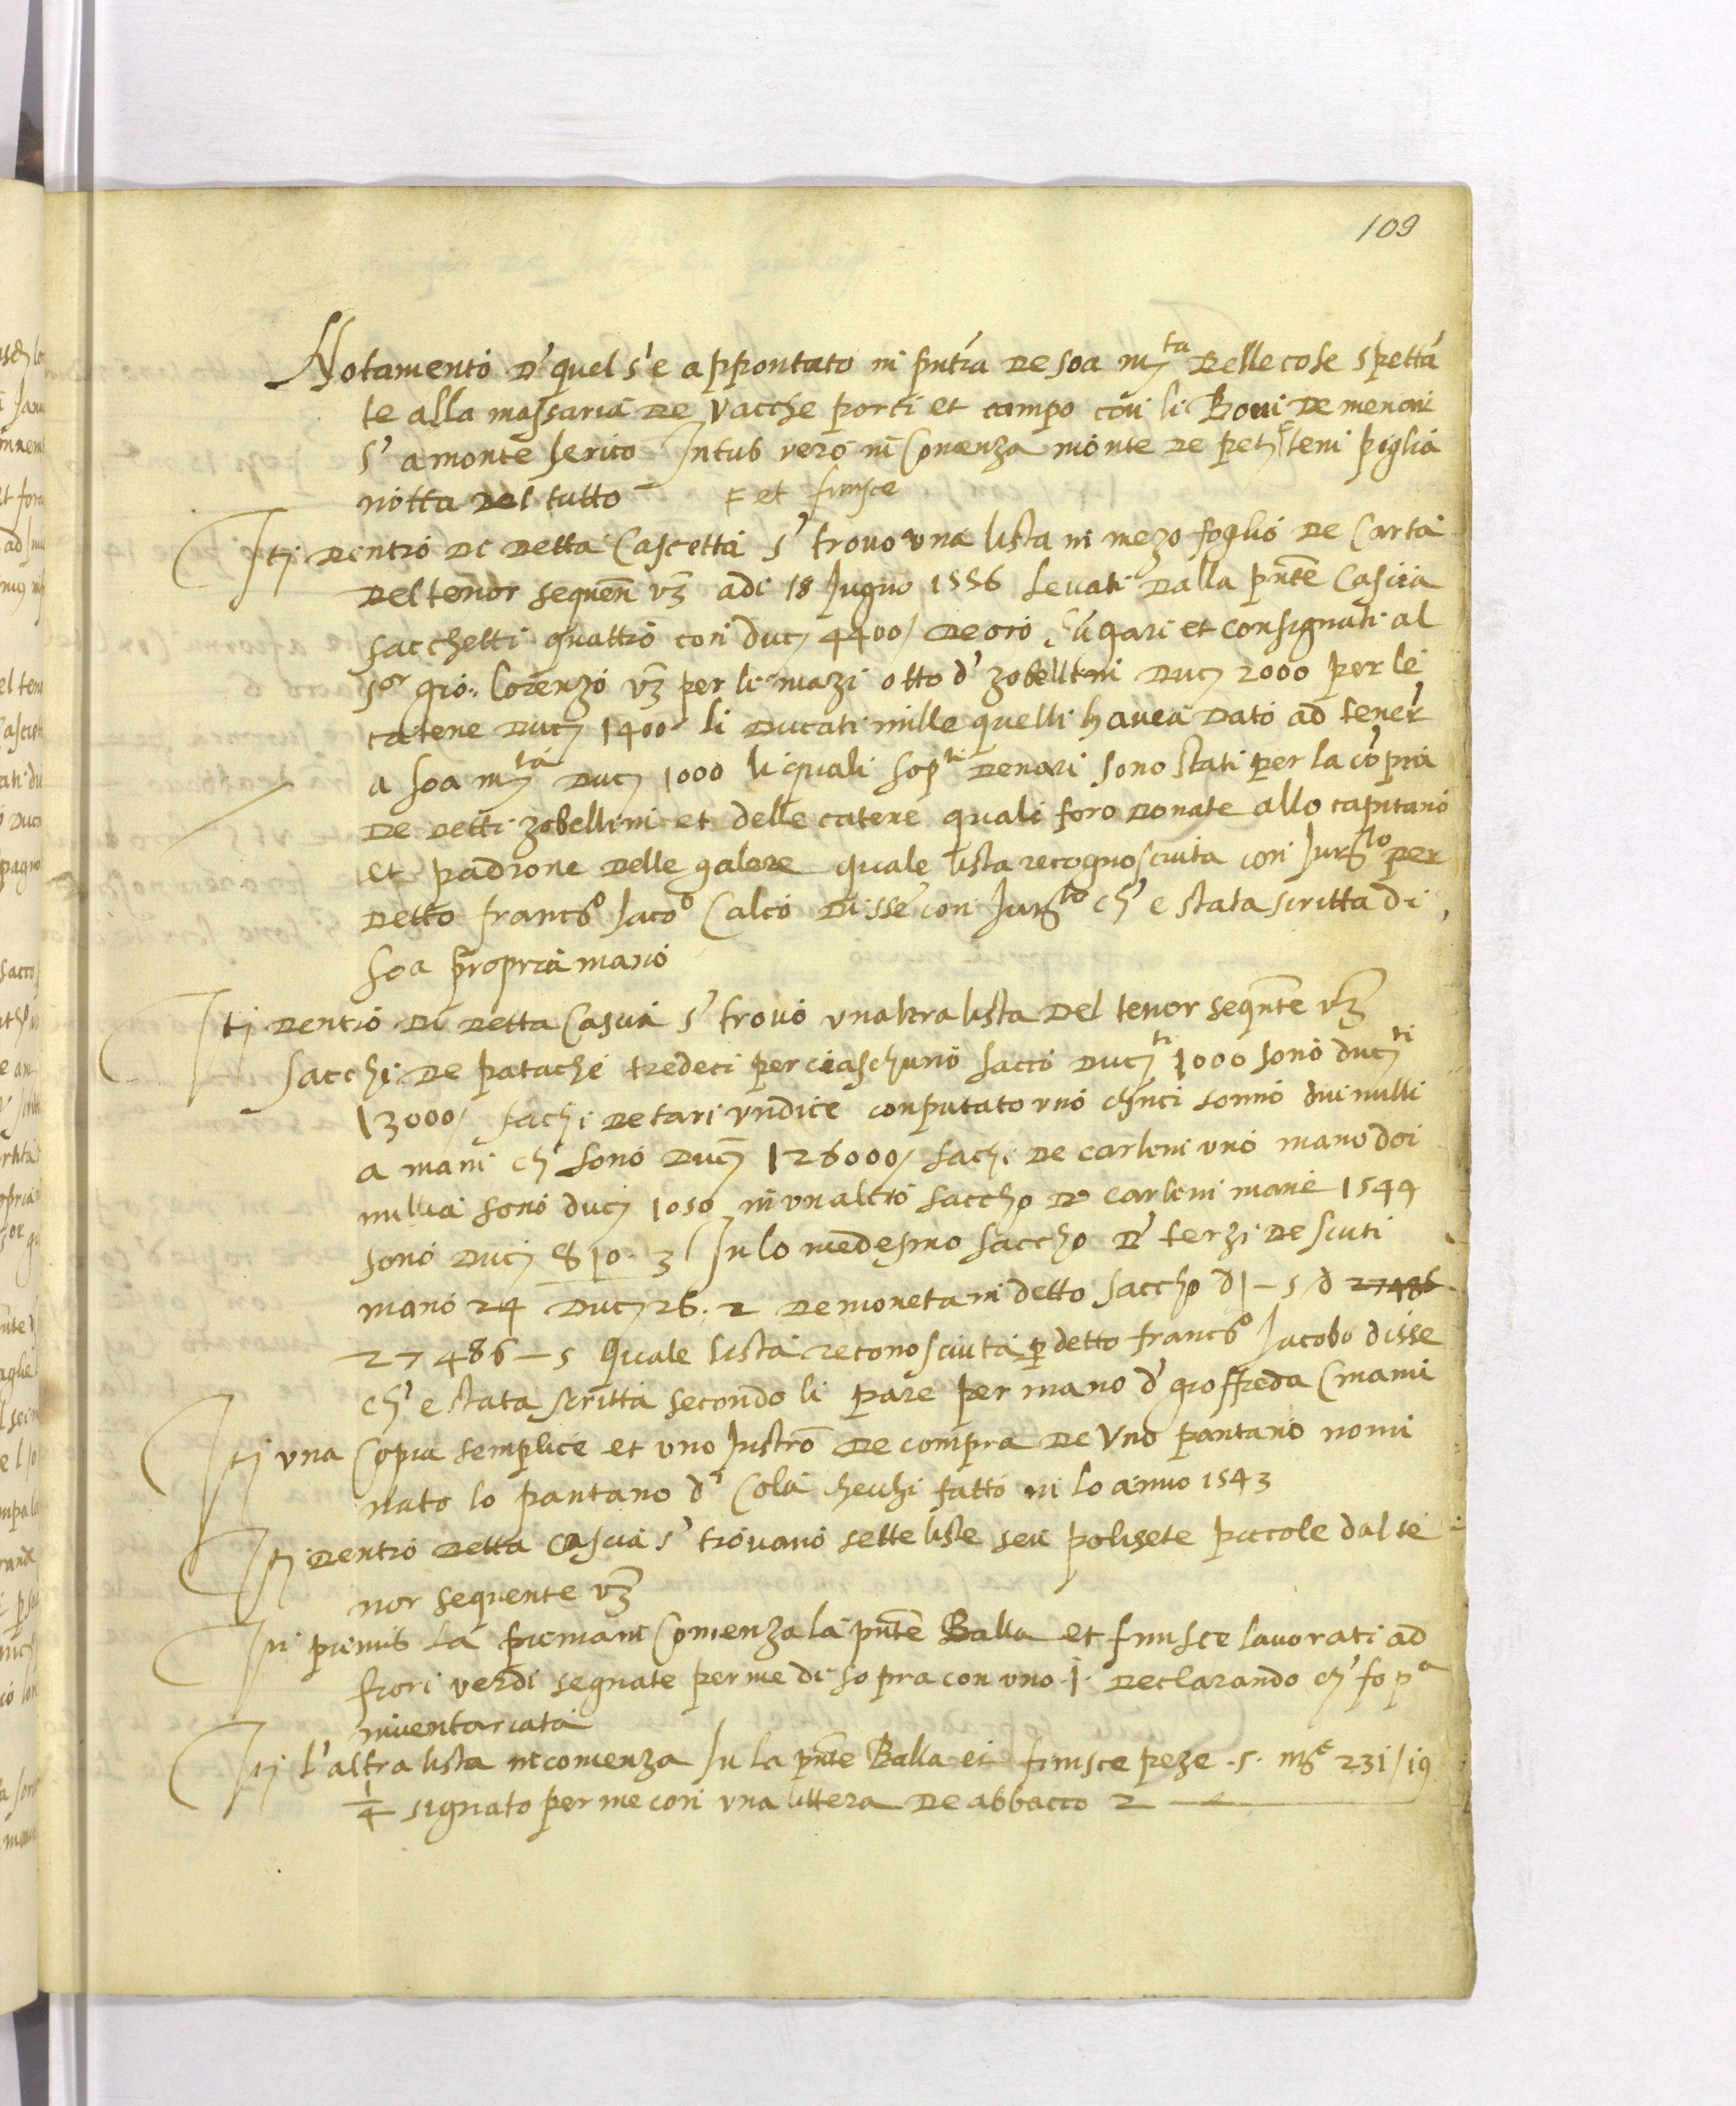 109
Notamento d' quel s'e appontato in pntia de soa mta delle cose spetta
te alla massaria de vacche porci et campo con li Bovi de menoni
s' a monte serico Intus vero in Comenza monte de teni piglia
notta del tutto F et finisce
Itj dentro de detta Cascetta s' trovo una lista in mezo foglio de Carta
del tenor sequen vz adi 18 Jugno 1556 Levati dalla pnte Cascia
sacchetti quattro con ducj 4400/ de oro ungari et consignati al
sor gio: Lorenzo vz per li mazi otto d' zobellini ducj 2000 per le
catene ducj 1400 li ducati mille quelli havea dato ad tener
a soa mta ducj 1000 li quali sopti denari sono stati per la copra
de detti zobellini et delle catene quali foro donate allo capitano
et padrone delle galere quale lista recognosciuta con Jurto per
detto francso Jacoo Calco disse con Jurto ch' e stata scritta di
soa propria mano
Itj dentro di detta Cascia s' trovo unaltra lista del tenor seqnte vz
sacchi de patache tredeci per ciaschuno sacco ducti 1000 sono ducti
13000/ sachi de tari undice conputato uno chinci sonno dui milli
a mani ch' sono ducj 126000/ sachi de carlini uno mano doi
milia sono ducj 1050 in unaltro saccho de carlini mane 1544
sono ducj 810. 3 In lo medesmo saccho d' terzi de scuti
mano 24 ducj 26. 2 de moneta in detto saccho d 1 – 5 / d 27486
27486 – 5 quale lista reconosciuta p detto francso Jacobo disse
ch' e stata scritta secondo li pare per mano d' gioffreda Cmami
Itj una Copia semplice et uno Instro de compra de uno pantano nomi
nato lo pantano d' Cola chechi fatto in lo anno 1543
Itj dentro detta Cascia s' trovano sette liste seu polisete piccole dal te
nor sequente vz
In primis la prima in Comenza la pnte Balla et finisce lavorati ad
fiori verdi segnate per me di sopra con uno .1. declarando ch' fo pa
inventariata
Itj l'altra lista incomenza In la pnte Balla ei finisce peze .5. 231/19
1/4 signato per me con una littera de abbacco 2